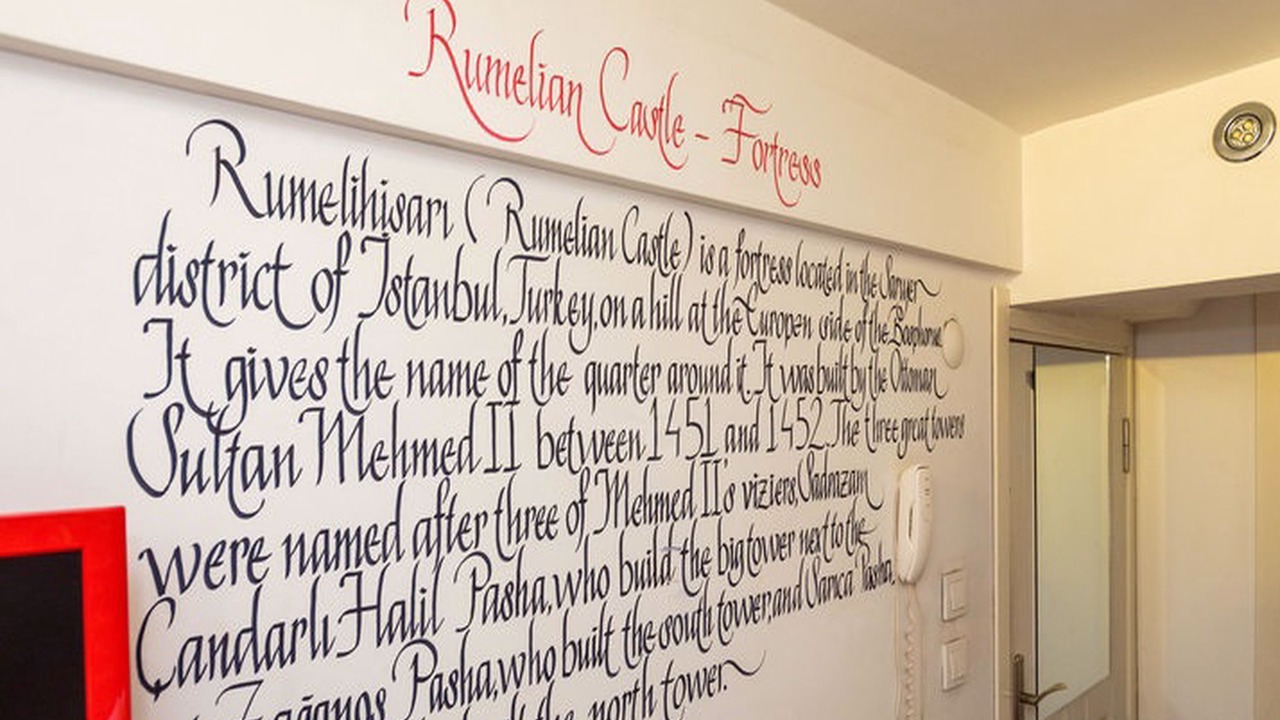 Rumelian Castle - Fortress
Rumelihisarı (Rumelian Castle) is a fortress located in the Sarıyer
district of İstanbul, Turkey, on a hill at the Europen side of the Bosphorus.
It gives the name of the quarter around it. It was built by the Ottoman
Sultan Mehmed II between 1451 and 1452. The three great towers
were named after three of Mehmed II's viziers, Sadrazam
Çandarlı Halil Pasha, who build the big tower next to the
Zağanos Pasha, who built the south tower, and Sarıca Pasha,
the north tower.